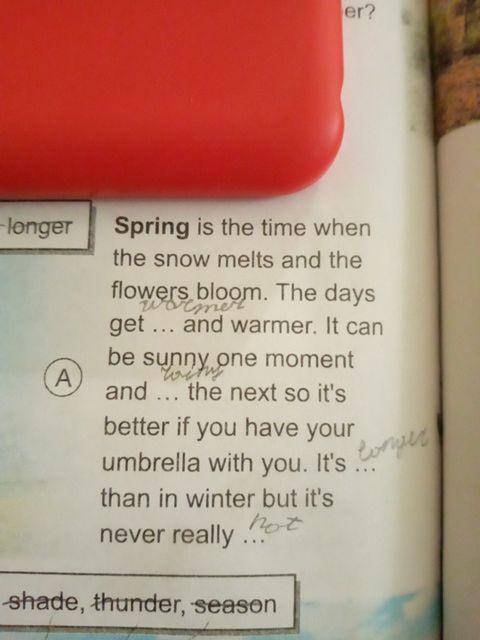 er?
longer
Spring is the time when
the snow melts and the
flowers bloom. The days
warmer
get ... and warmer. It can
be sunny one moment
A
and ... the next so it's
better if you have your
longer
umbrella with you. It's ...
than in winter but it's
hot
never really ...
shade, thunder, season